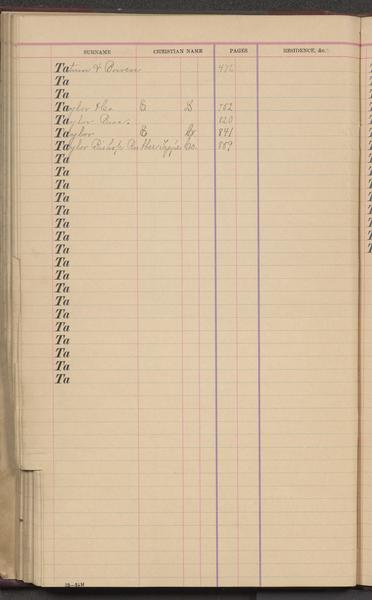 SURNAME CHRISTIAN NAME PAGES RESIDENCE, &c.
Tatum & Bowen 472
Ta
Ta
Taylor & Co. E D 782
Taylor Bros. 820
Taylor E G 841
Taylor Bishop Co. 889
Ta
Ta
Ta
Ta
Ta
Ta
Ta
Ta
Ta
Ta
Ta
Ta
Ta
Ta
Ta
Ta
Ta
Ta